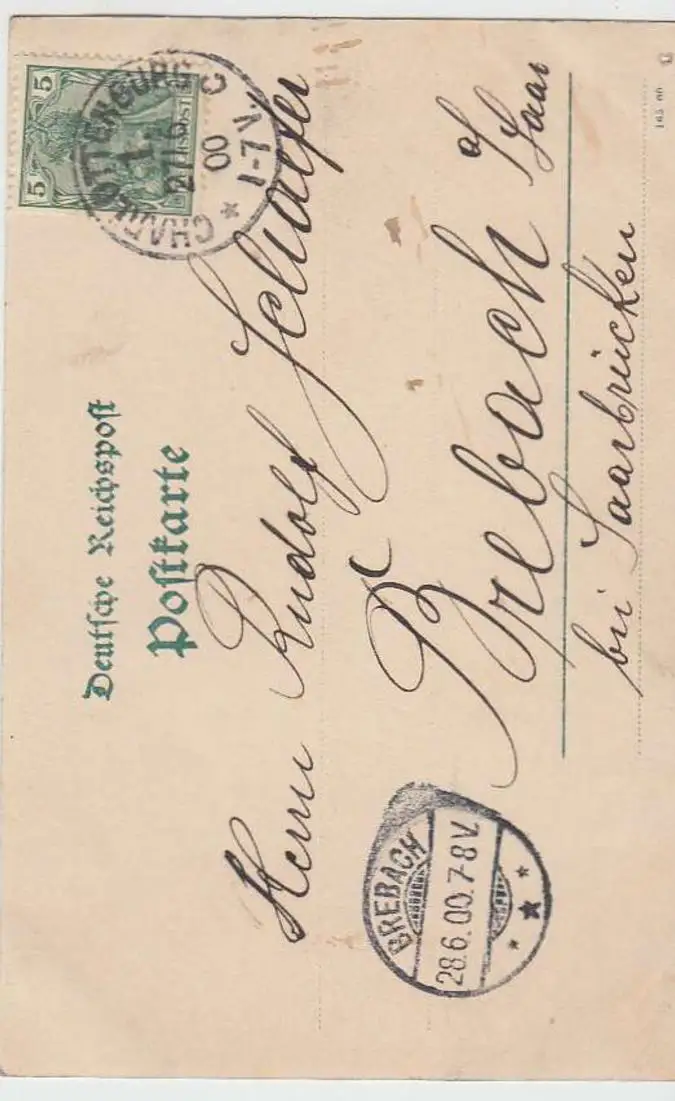 Deutsche Reichspost
Postkarte
5 5
REICHSPOST
CHARLOTTENBURG
1.
27.6
00
1-7 V.
C
Herrn Rudolf Schaefer
Brebach a/Saar
bei Saarbrücken
BREBACH
28.6.00.7-8V.
165 00 G